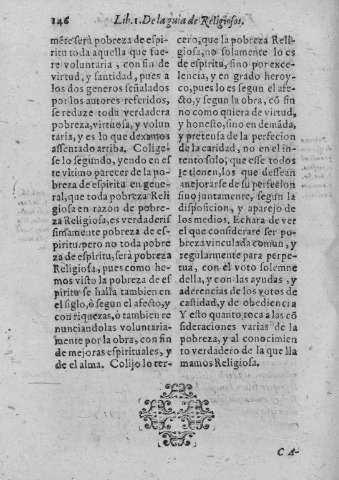 146 Lib. 1. De la guia de Religiosos.
mẽte serà pobreza de espi-
ritu toda aquella que fue-
re voluntaria, con fin de
virtud, y santidad, pues a
los dos generos señalados
por los autores referidos,
se reduze toda verdadera
pobreza, virtuosa, y volun
taria, y es lo que dexamos
assentado arriba. Colige-
se lo segundo, yendo en es
te vltimo parecer de la po-
breza de espiritu en gene-
ral, que toda pobreza Reli
giosa en razon de pobre-
za Religiosa, es verdaderis
simamente pobreza de es-
piritu: pero no toda pobre
za de espiritu, serà pobreza
Religiosa, pues como he-
mos visto la pobreza de es
piritu se halla tambien en
el siglo, ò segun el afecto, y
con riquezas, ò tambien re
nunciandolas voluntaria-
mente por la obra, con fin
de mejoras espirituales, y
de el alma. Colijo lo ter-
cero, que la pobreza Reli-
giosa, no solamente lo es
de espiritu, sino por exce-
lencia, y en grado heroy-
co, pues lo es segun el afe-
cto, y segun la obra, cõ fin
no como quiera de virtud,
y honesto, sino en demãda,
y pretensa de la perfecion
de la caridad, no en el in-
tento solo; que esse todos
le tienen, los que dessean
mejorarse de su perfecion
sino juntamente, segun la
disposicion, y aparejo de
los medios. Echara de ver
el que considerare ser po-
breza vinculada comun, y
regularmente para perpe-
tua, con el voto solemne
della, y con las ayudas, y
aderencias de los votos de
castidad, y de obediencia
Y esto quanto toca a las cõ
sideraciones varias de la
pobreza, y al conocimien
to verdadero de la que lla
mamos Religiosa.
C A-